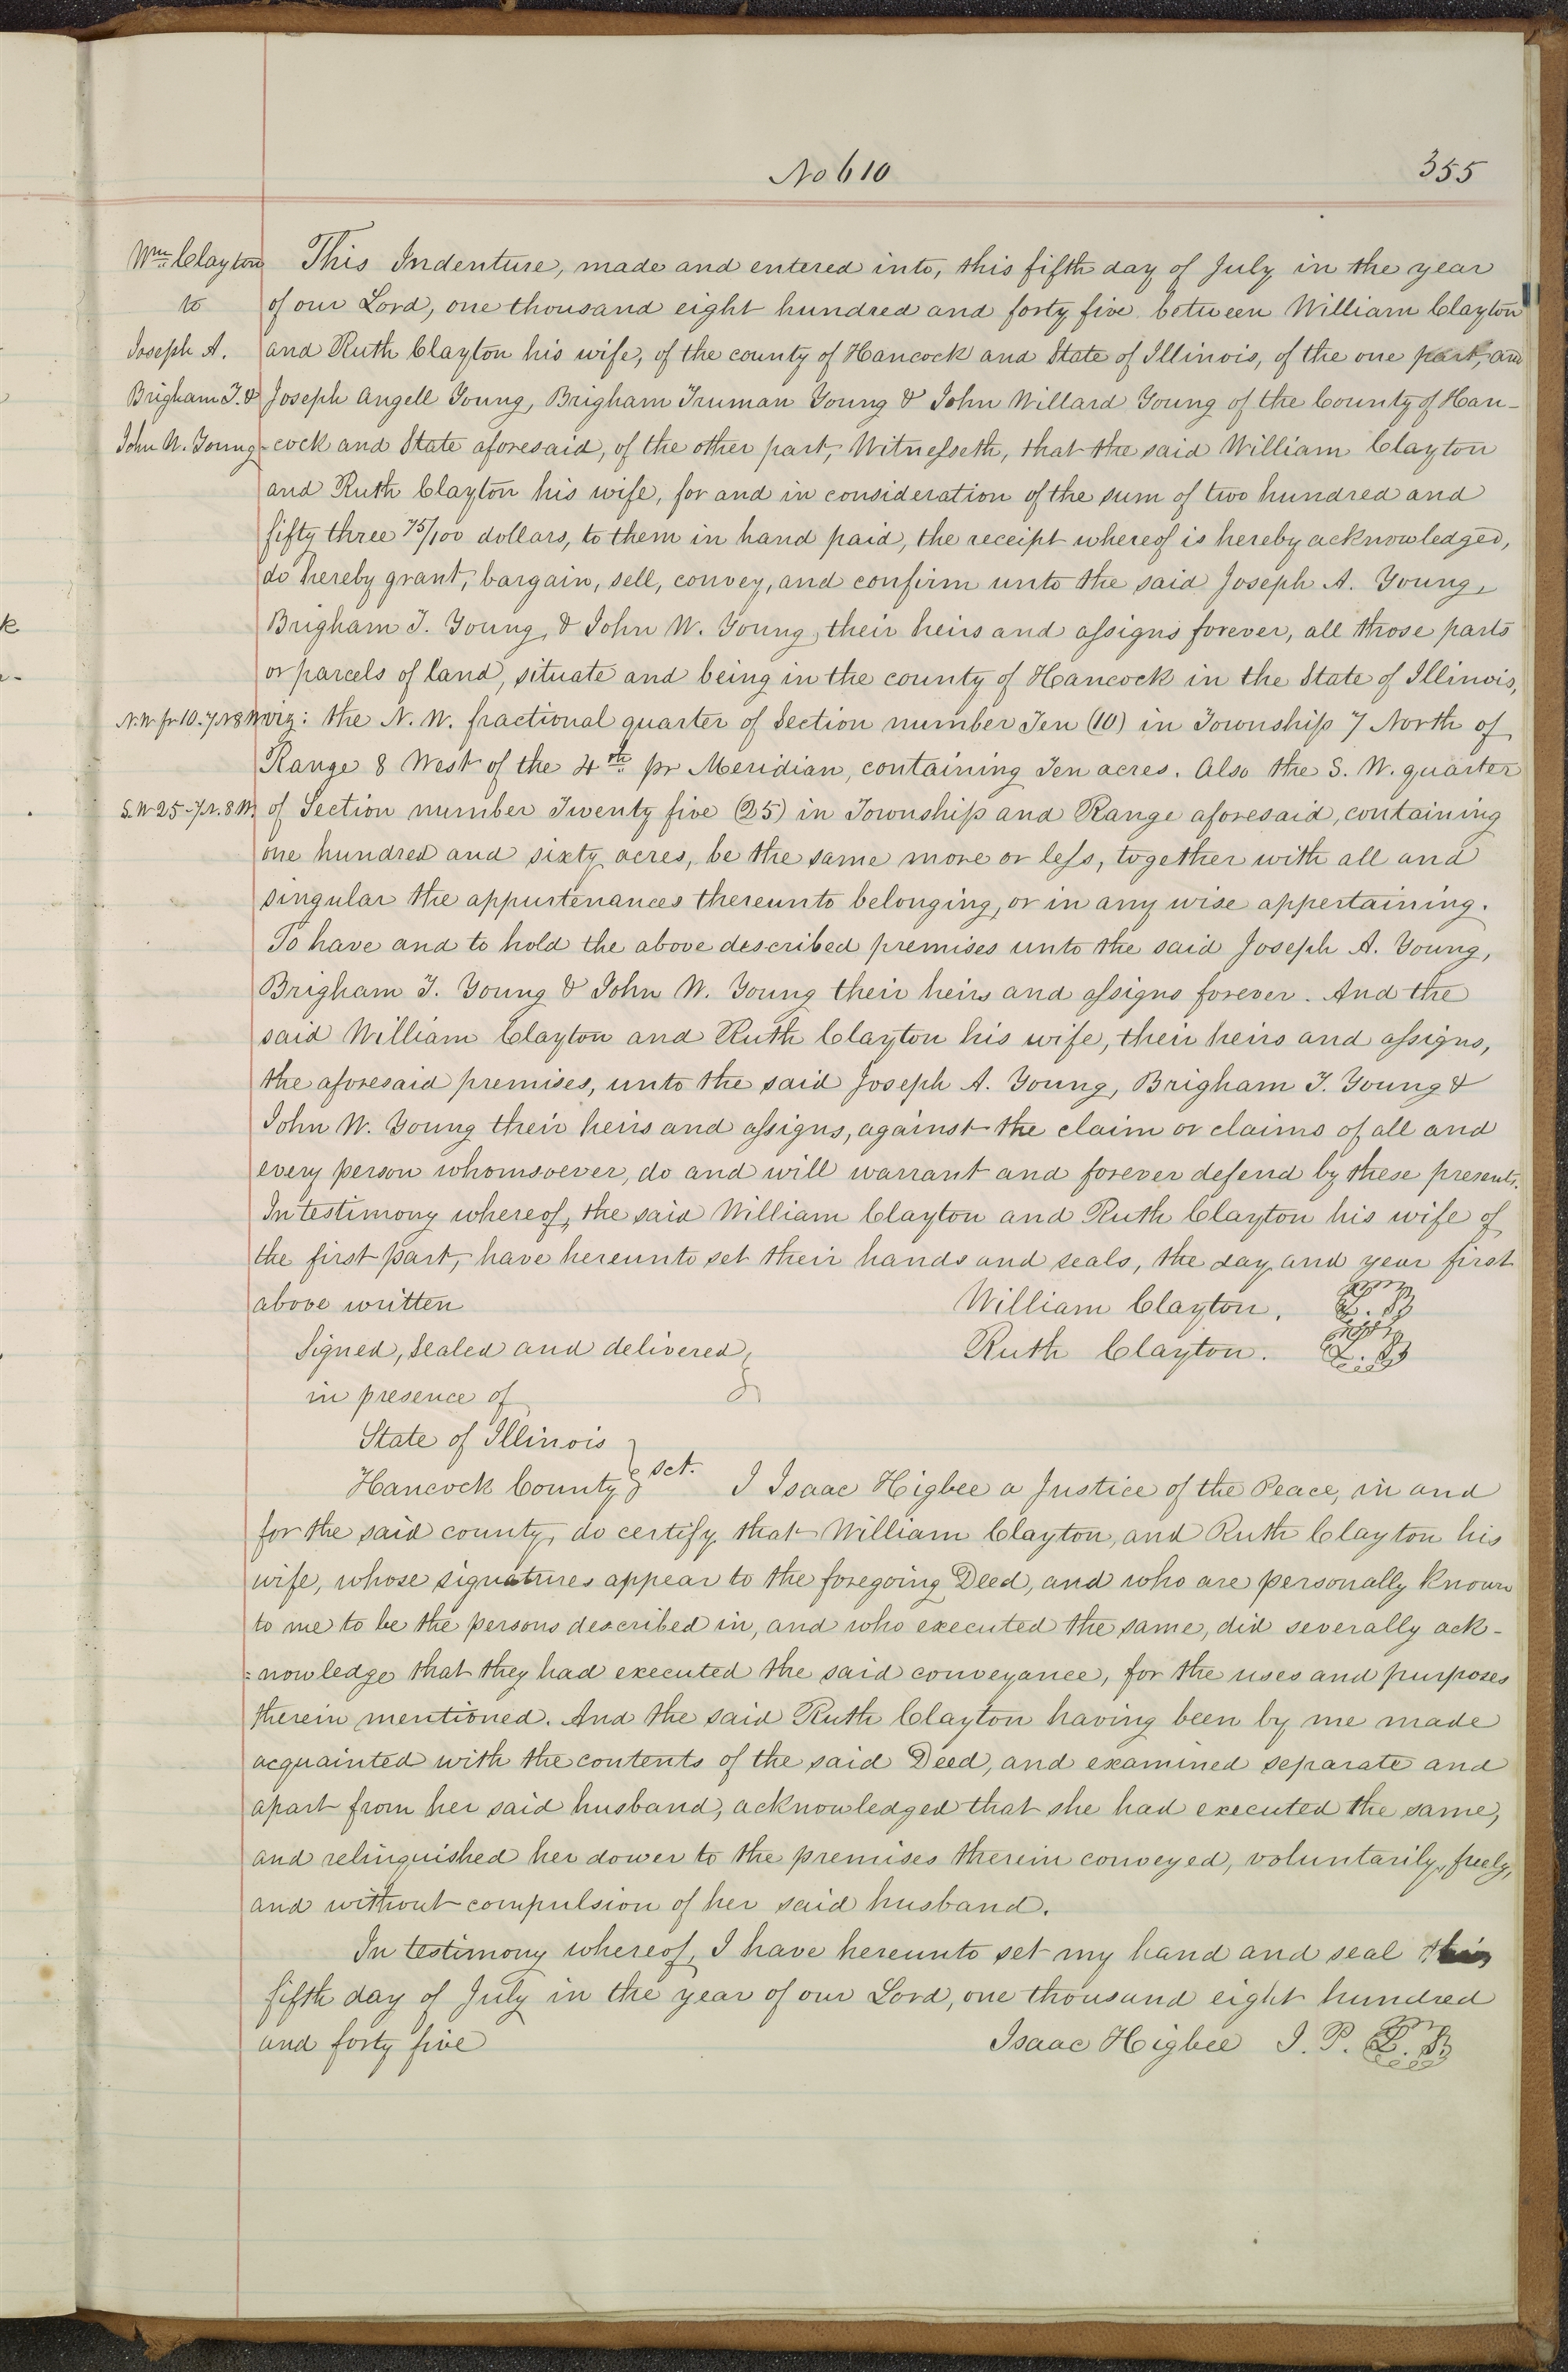 No 610 355
Wm. Clayton
to
Joseph A.
Brigham T. &
John W. Young
This Indenture, made and entered into, this fifth day of July in the year
of our Lord, one thousand eight hundred and forty five between William Clayton
and Ruth Clayton his wife, of the county of Hancock and State of Illinois, of the one part, and
Joseph Angell Young, Brigham Truman Young & John Willard Young of the County of Han-
-cock and State aforesaid, of the other part, Witnesseth, that the said William Clayton
and Ruth Clayton his wife, for and in consideration of the sum of two hundred and
fifty three 75/100 dollars, to them in hand paid, the receipt whereof is hereby acknowledged,
do hereby grant, bargain, sell, convey, and confirm unto the said Joseph A. Young,
Brigham T. Young, & John W. Young, their heirs and assigns forever, all those parts
or parcels of land, situate and being in the county of Hancock in the State of Illinois,
N.W. fr 10. 7 N 8 W
viz: the N. W. fractional quarter of Section number Ten (10) in Township 7 North of
Range 8 West of the 4th pr Meridian, containing Ten acres. Also the S. W. quarter
S.W 25-7 N. 8 W.
of Section number Twenty five (25) in Township and Range aforesaid, containing
one hundred and sixty acres, be the same more or less, together with all and
singular the appurtenances thereunto belonging, or in any wise appertaining.
To have and to hold the above described premises unto the said Joseph A. Young,
Brigham T. Young & John W. Young their heirs and assigns forever. And the
said William Clayton and Ruth Clayton his wife, their heirs and assigns,
the aforesaid premises, unto the said Joseph A. Young, Brigham T. Young &
John W. Young their heirs and assigns, against the claim or claims of all and
every person whomsoever, do and will warrant and forever defend by these presents.
In testimony whereof, the said William Clayton and Ruth Clayton his wife of
the first part, have hereunto set their hands and seals, the day and year first
above written William Clayton. L. S.
Signed, Sealed and delivered Ruth Clayton. L. S.
in presence of
State of Illinois
Hancock County } sct. I Isaac Higbee a Justice of the Peace, in and
for the said county, do certify that William Clayton, and Ruth Clayton his
wife, whose signatures appear to the foregoing Deed, and who are personally known
to me to be the persons described in, and who executed the same, did severally ack-
=nowledge that they had executed the said conveyance, for the uses and purposes
therein mentioned. And the said Ruth Clayton having been by me made
acquainted with the contents of the said Deed, and examined separate and
apart from her said husband, acknowledged that she had executed the same,
and relinquished her dower to the premises therein conveyed, voluntarily, freely,
and without compulsion of her said husband.
In testimony whereof, I have hereunto set my hand and seal this
fifth day of July in the year of our Lord, one thousand eight hundred
and forty five Isaac Higbee J. P. L. S.